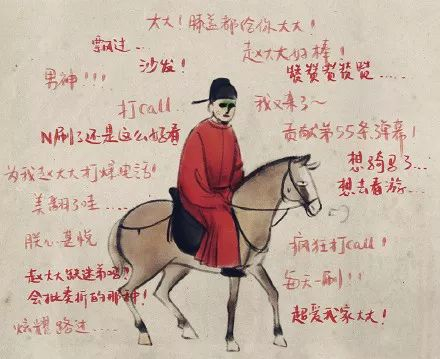 太太！膝盖都给你太太！
飘过…
赵太太好棒！
沙发！
赞赞赞赞赞……
男神！！！
打call
我又来了～
N刷了还是这么好看
贡献第55条弹幕！
想骑马了…
为我赵太太打爆电话！
想去看游……
美翻了哇……
朕心甚悦
疯狂打call！
赵太太缺迷弟吗？
会批奏折的那种！
每天一刷！！
超爱我家太太！
炫耀路过……